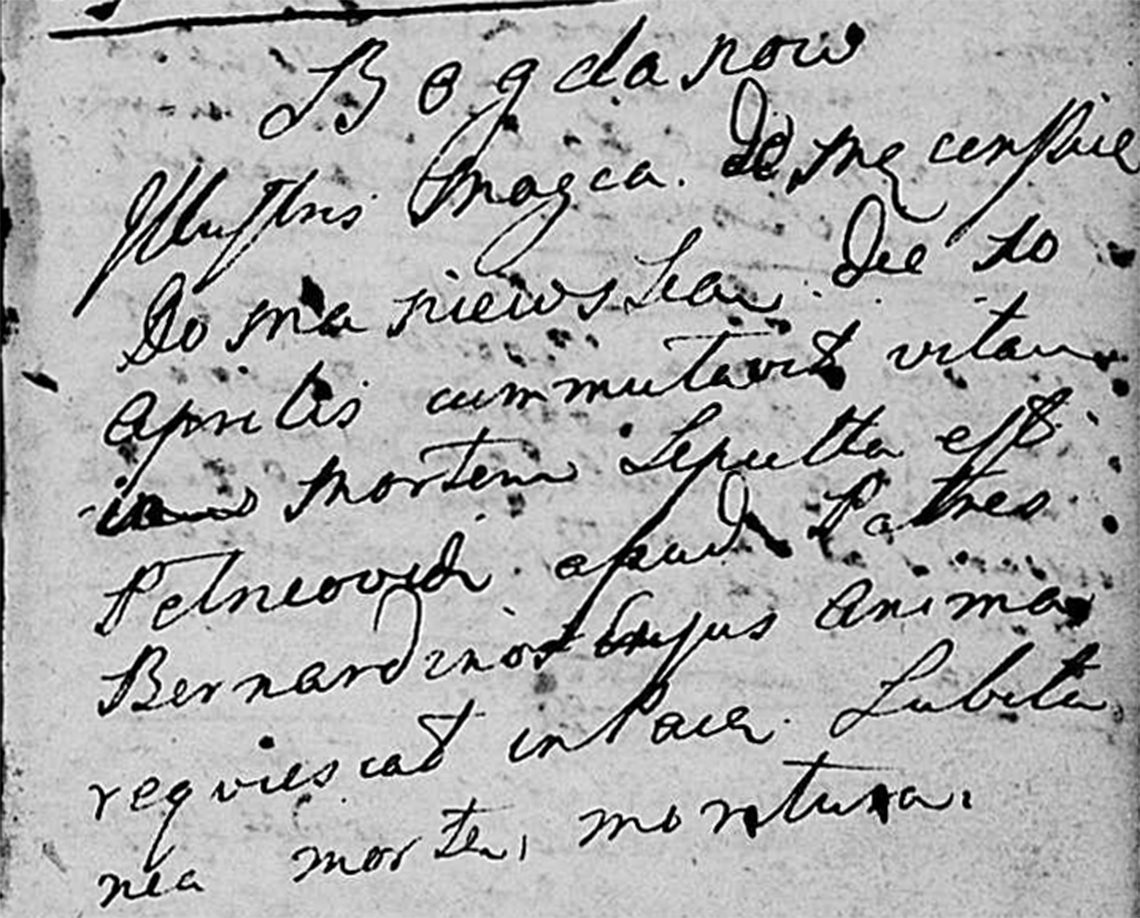 Bogdanow
Illustris Magca. De
Domaniewska Die 10
Aprilis commutavit vitam
mortem Sepulta est
apud Patres
Bernardinos Cujus anima
requiescat in Pace. Subita
nea morte, mortura.